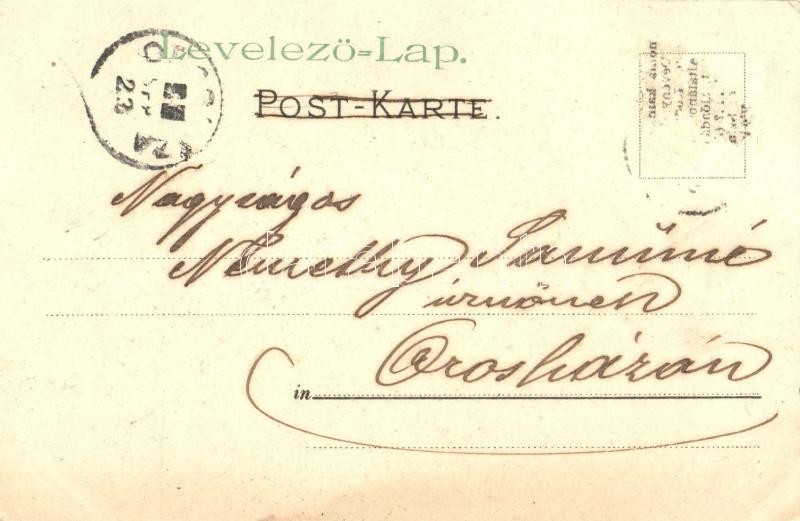 Levelező-Lap.
POST-KARTE.
23
Nagyságos
Némethy Samuné
úrnőnek
in Orosházán